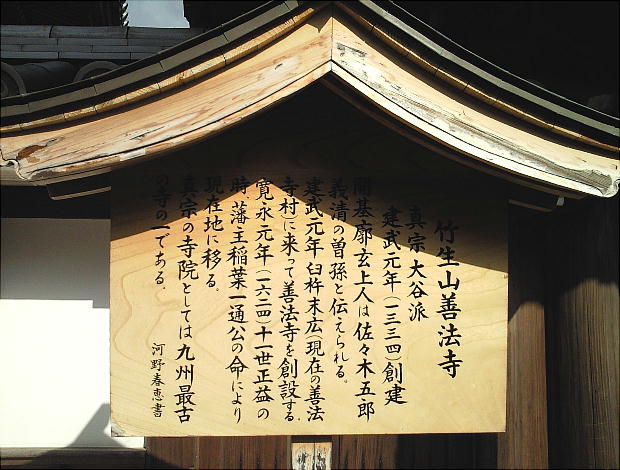 竹生山善法寺
真宗大谷派
建武元年(一三三四)創建
開基廓玄上人は佐々木五郎
義清の曽孫と伝えられる。
建武元年臼杵末広(現在の善法
寺村)に来って善法寺を創設する
寛永元年(一六二四)十一世正益の
時、藩主稲葉一通公の命により
現在地に移る。
真宗の寺院としては九州最古
の寺の一である。
河野春恵書